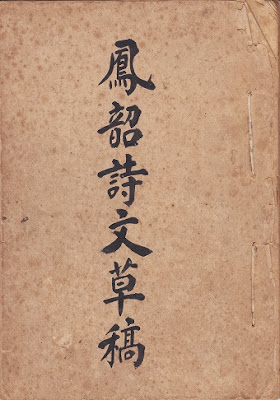 鳳韶詩文草稿